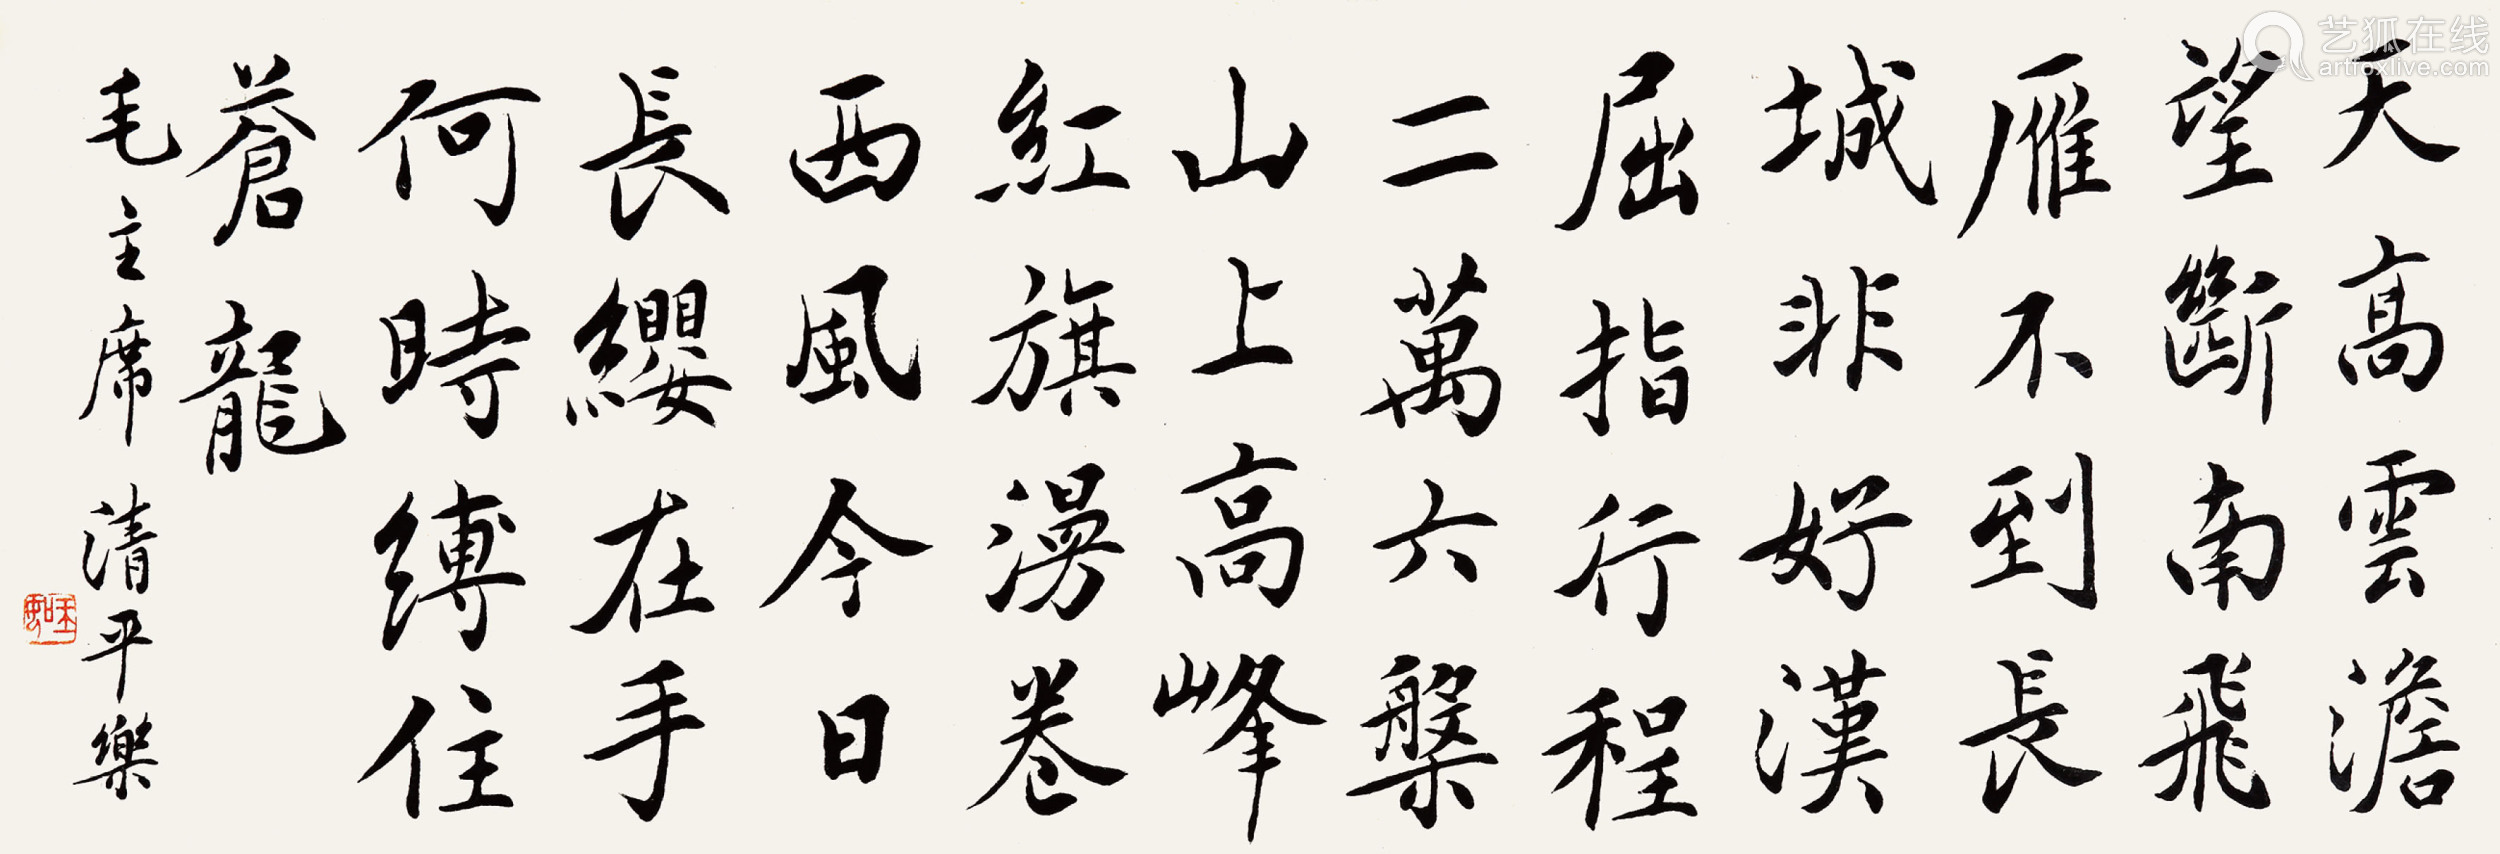 天高雲澹
望斷南飛
雁不到長
城非好漢
屈指行程
二萬六槃
山上高峰
紅旗漫卷
西風今日
長纓在手
何時縛住
蒼龍
毛主席清平樂
艺狐在线
artfoxlive.com